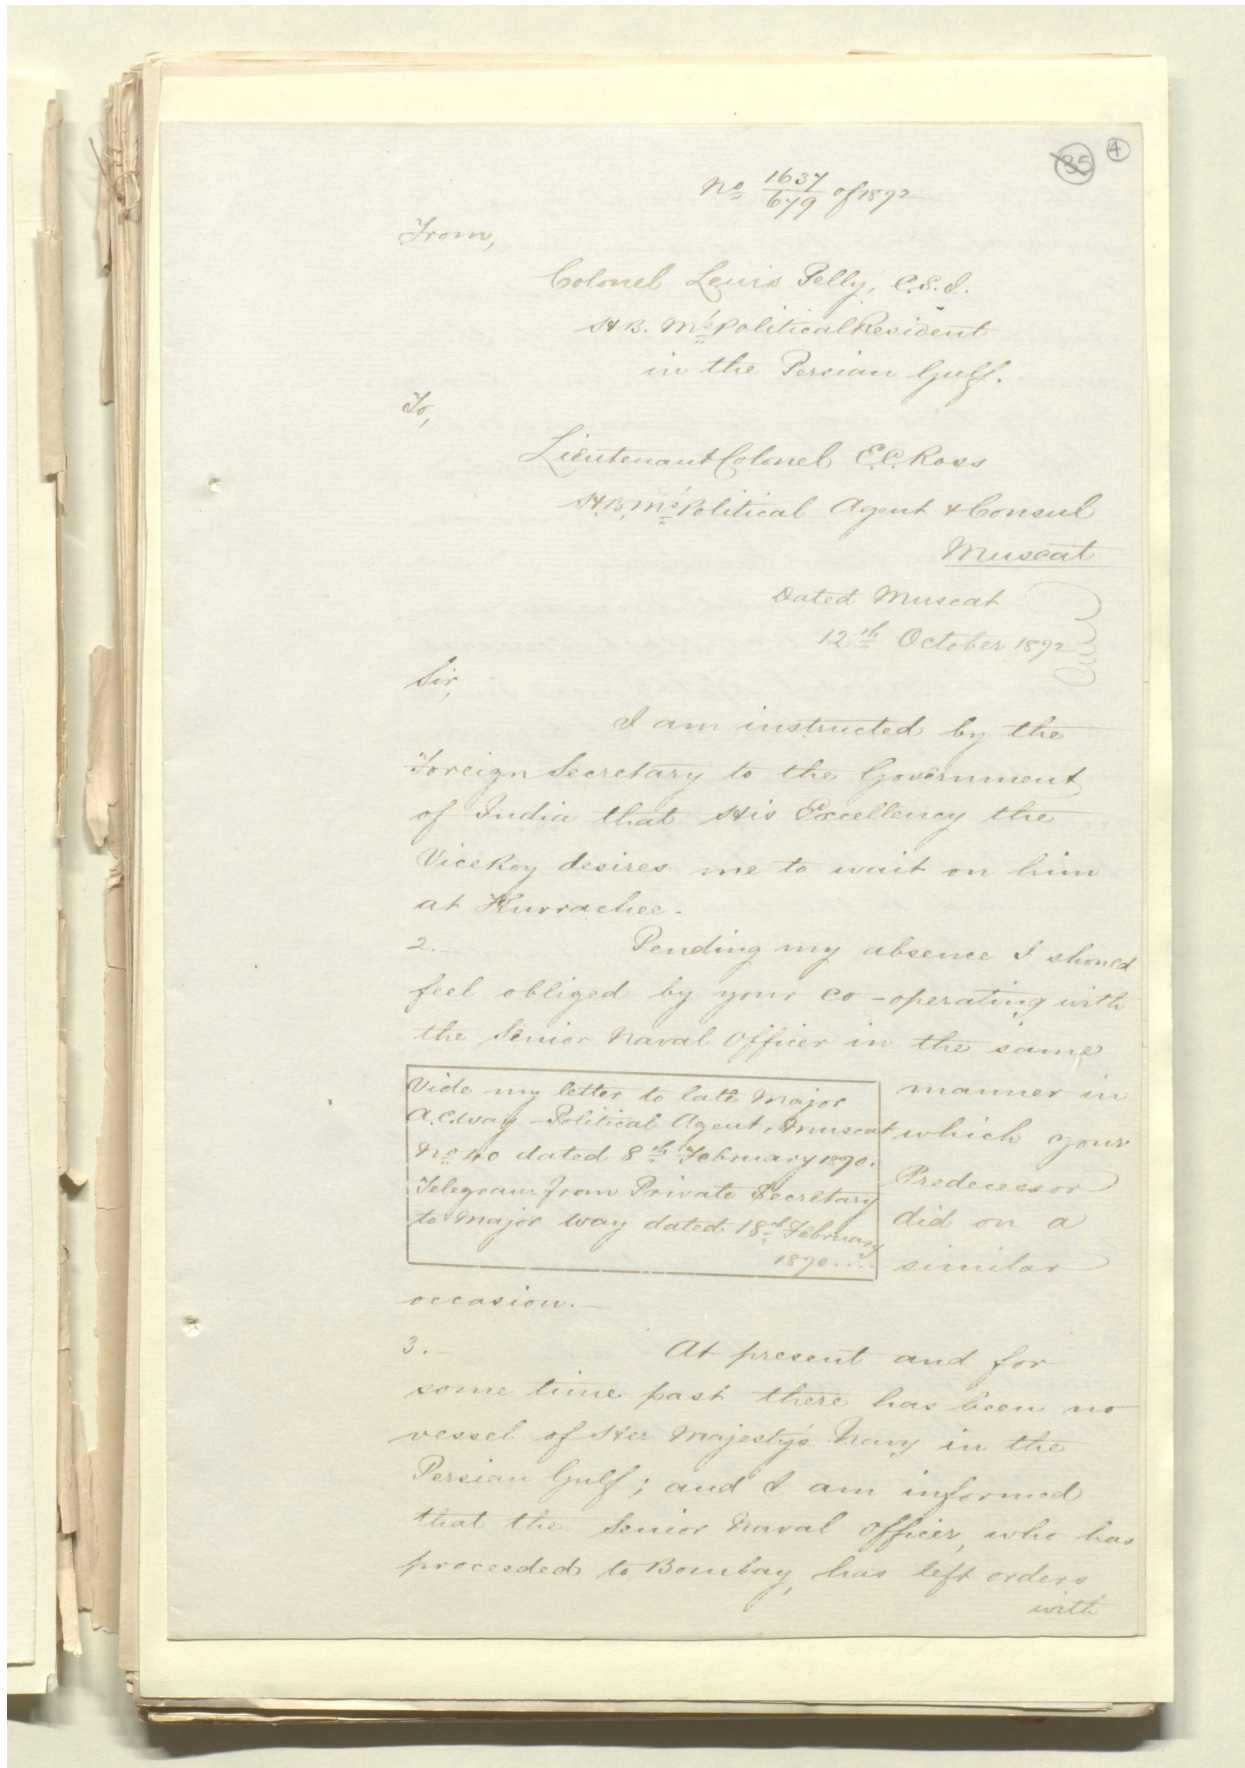 35 4
No 1637/679 of 1872
From,
Colonel Lewis Pelly, C.S.I.
H.B. M's Political Resident
in the Persian Gulf.
To,
Lieutenant Colonel E.C. Ross
H.B.M's Political Agent & Consul
Muscat
Dated Muscat
12th October 1872
Sir,
I am instructed by the
Foreign Secretary to the Government
of India that His Excellency the
ViceRoy desires me to wait on him
at Kurrachee.
2.- Pending my absence I should
feel obliged by your co-operating with
the Senior Naval Officer in the same
manner in
which your
Predecessor
did on a
similar
Vide my letter to late Major
A.C. Way - Political Agent, Muscat
No 40 dated 8th February 1870.
Telegram from Private Secretary
to Major Way dated 18th February
1870....
occasion.-
3.- At present and for
some time past there has been no
vessel of Her Majesty's Navy in the
Persian Gulf; and I am informed
that the Senior Naval Officer, who has
proceeded to Bombay, has left orders
with